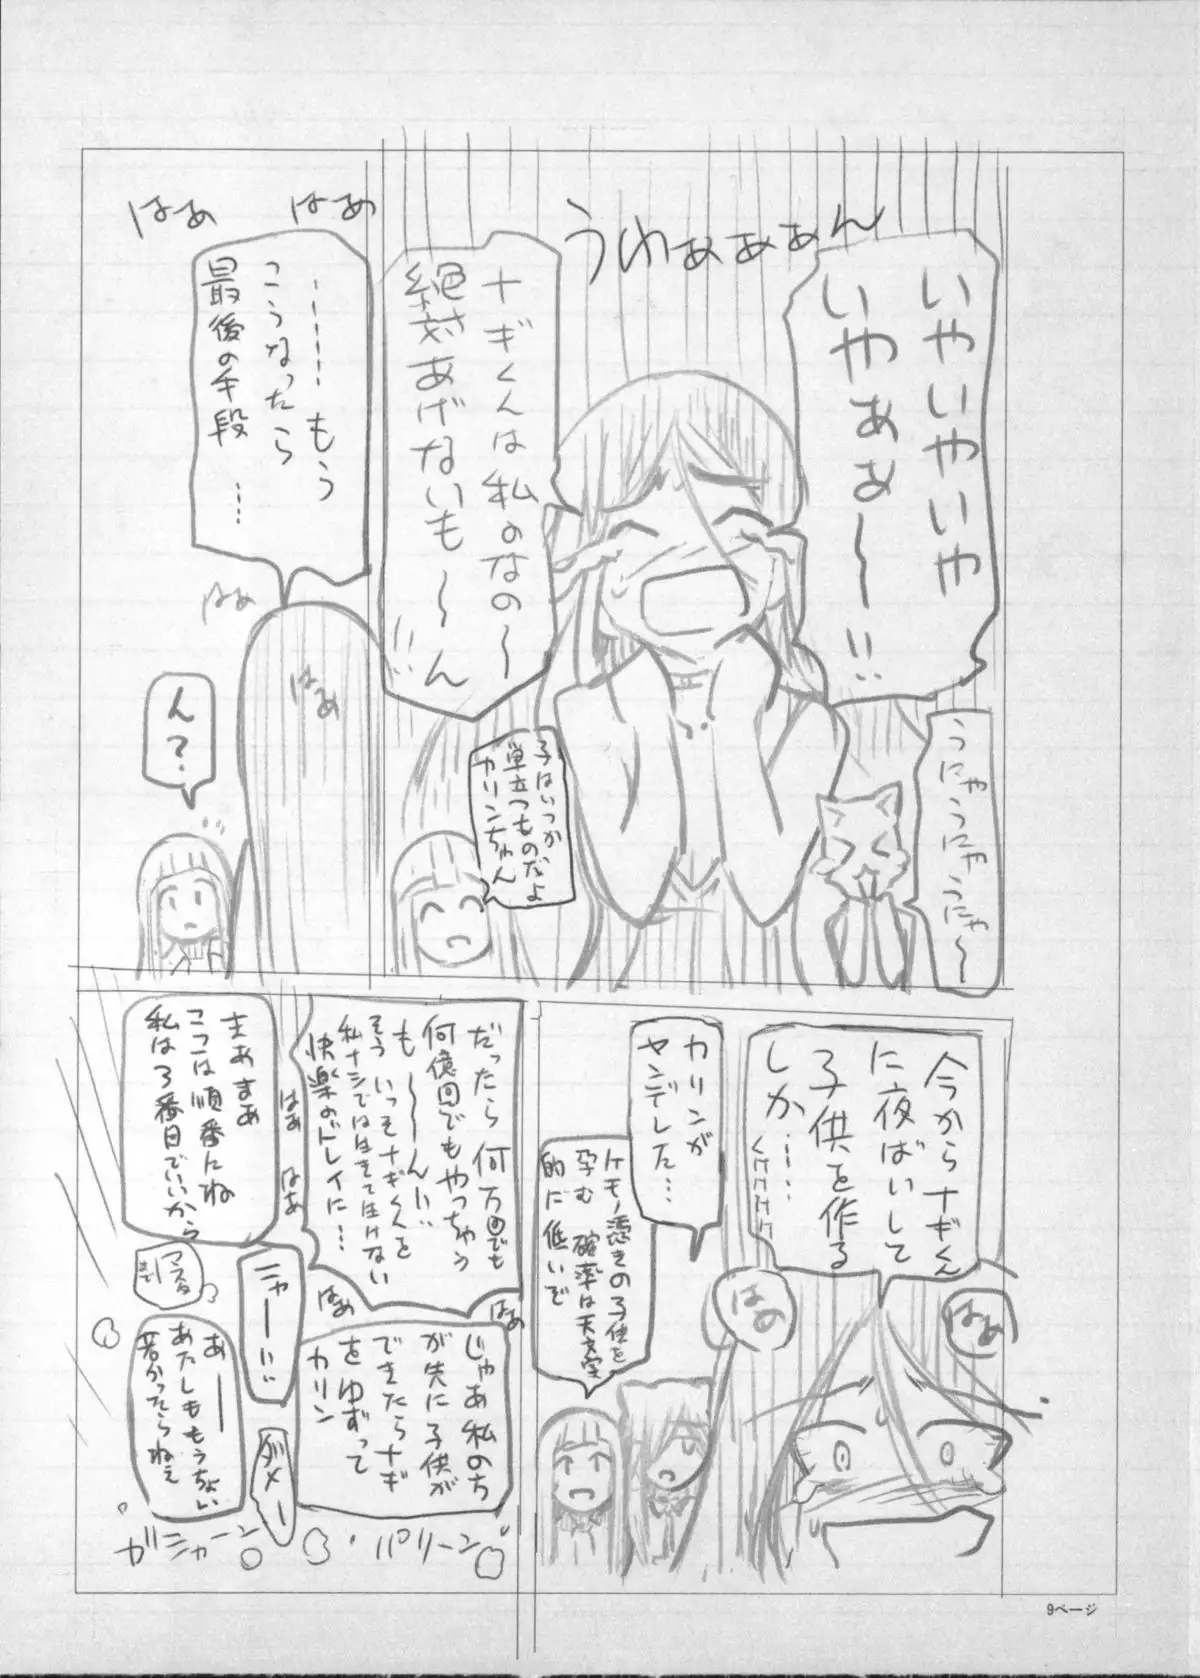 うわぁぁぁん
いやいやいや
いやぁあ～!!
うにゃうにゃうにゃ～
ナギくんは私のなの～
絶対あげないも～ん
!!
子はいつか
巣立つものだよ
カリンちゃん
はぁ
はぁ
……もう
こうなったら
最後の手段
…
はぁ
はぁ
ん?
今からナギくん
に夜ばいして
子供を作る
しか……
ケケケケケ
はぁ
はぁ
カリンが
ヤンデレした…
ケモノ憑きの子供を
孕む 確率は天文学
的に低いで
だったら何万回でも
何億回でもやっちゃう
も～～ん!!
そう いっそナギくんを
私ナシでは生きて生けない
快楽のドレイに…
はぁ
はぁ
はぁ
はぁ
まあまあ
ここは順番にね
私は3番目でいいから
じゃあ私のち
が先に子供が
できたらナギ
をゆずって
カリン
ニャー!!
ダメー
マスター
あー
あたしももうちょい
若かったらねえ
ガシャーン
パリーン
9ページ